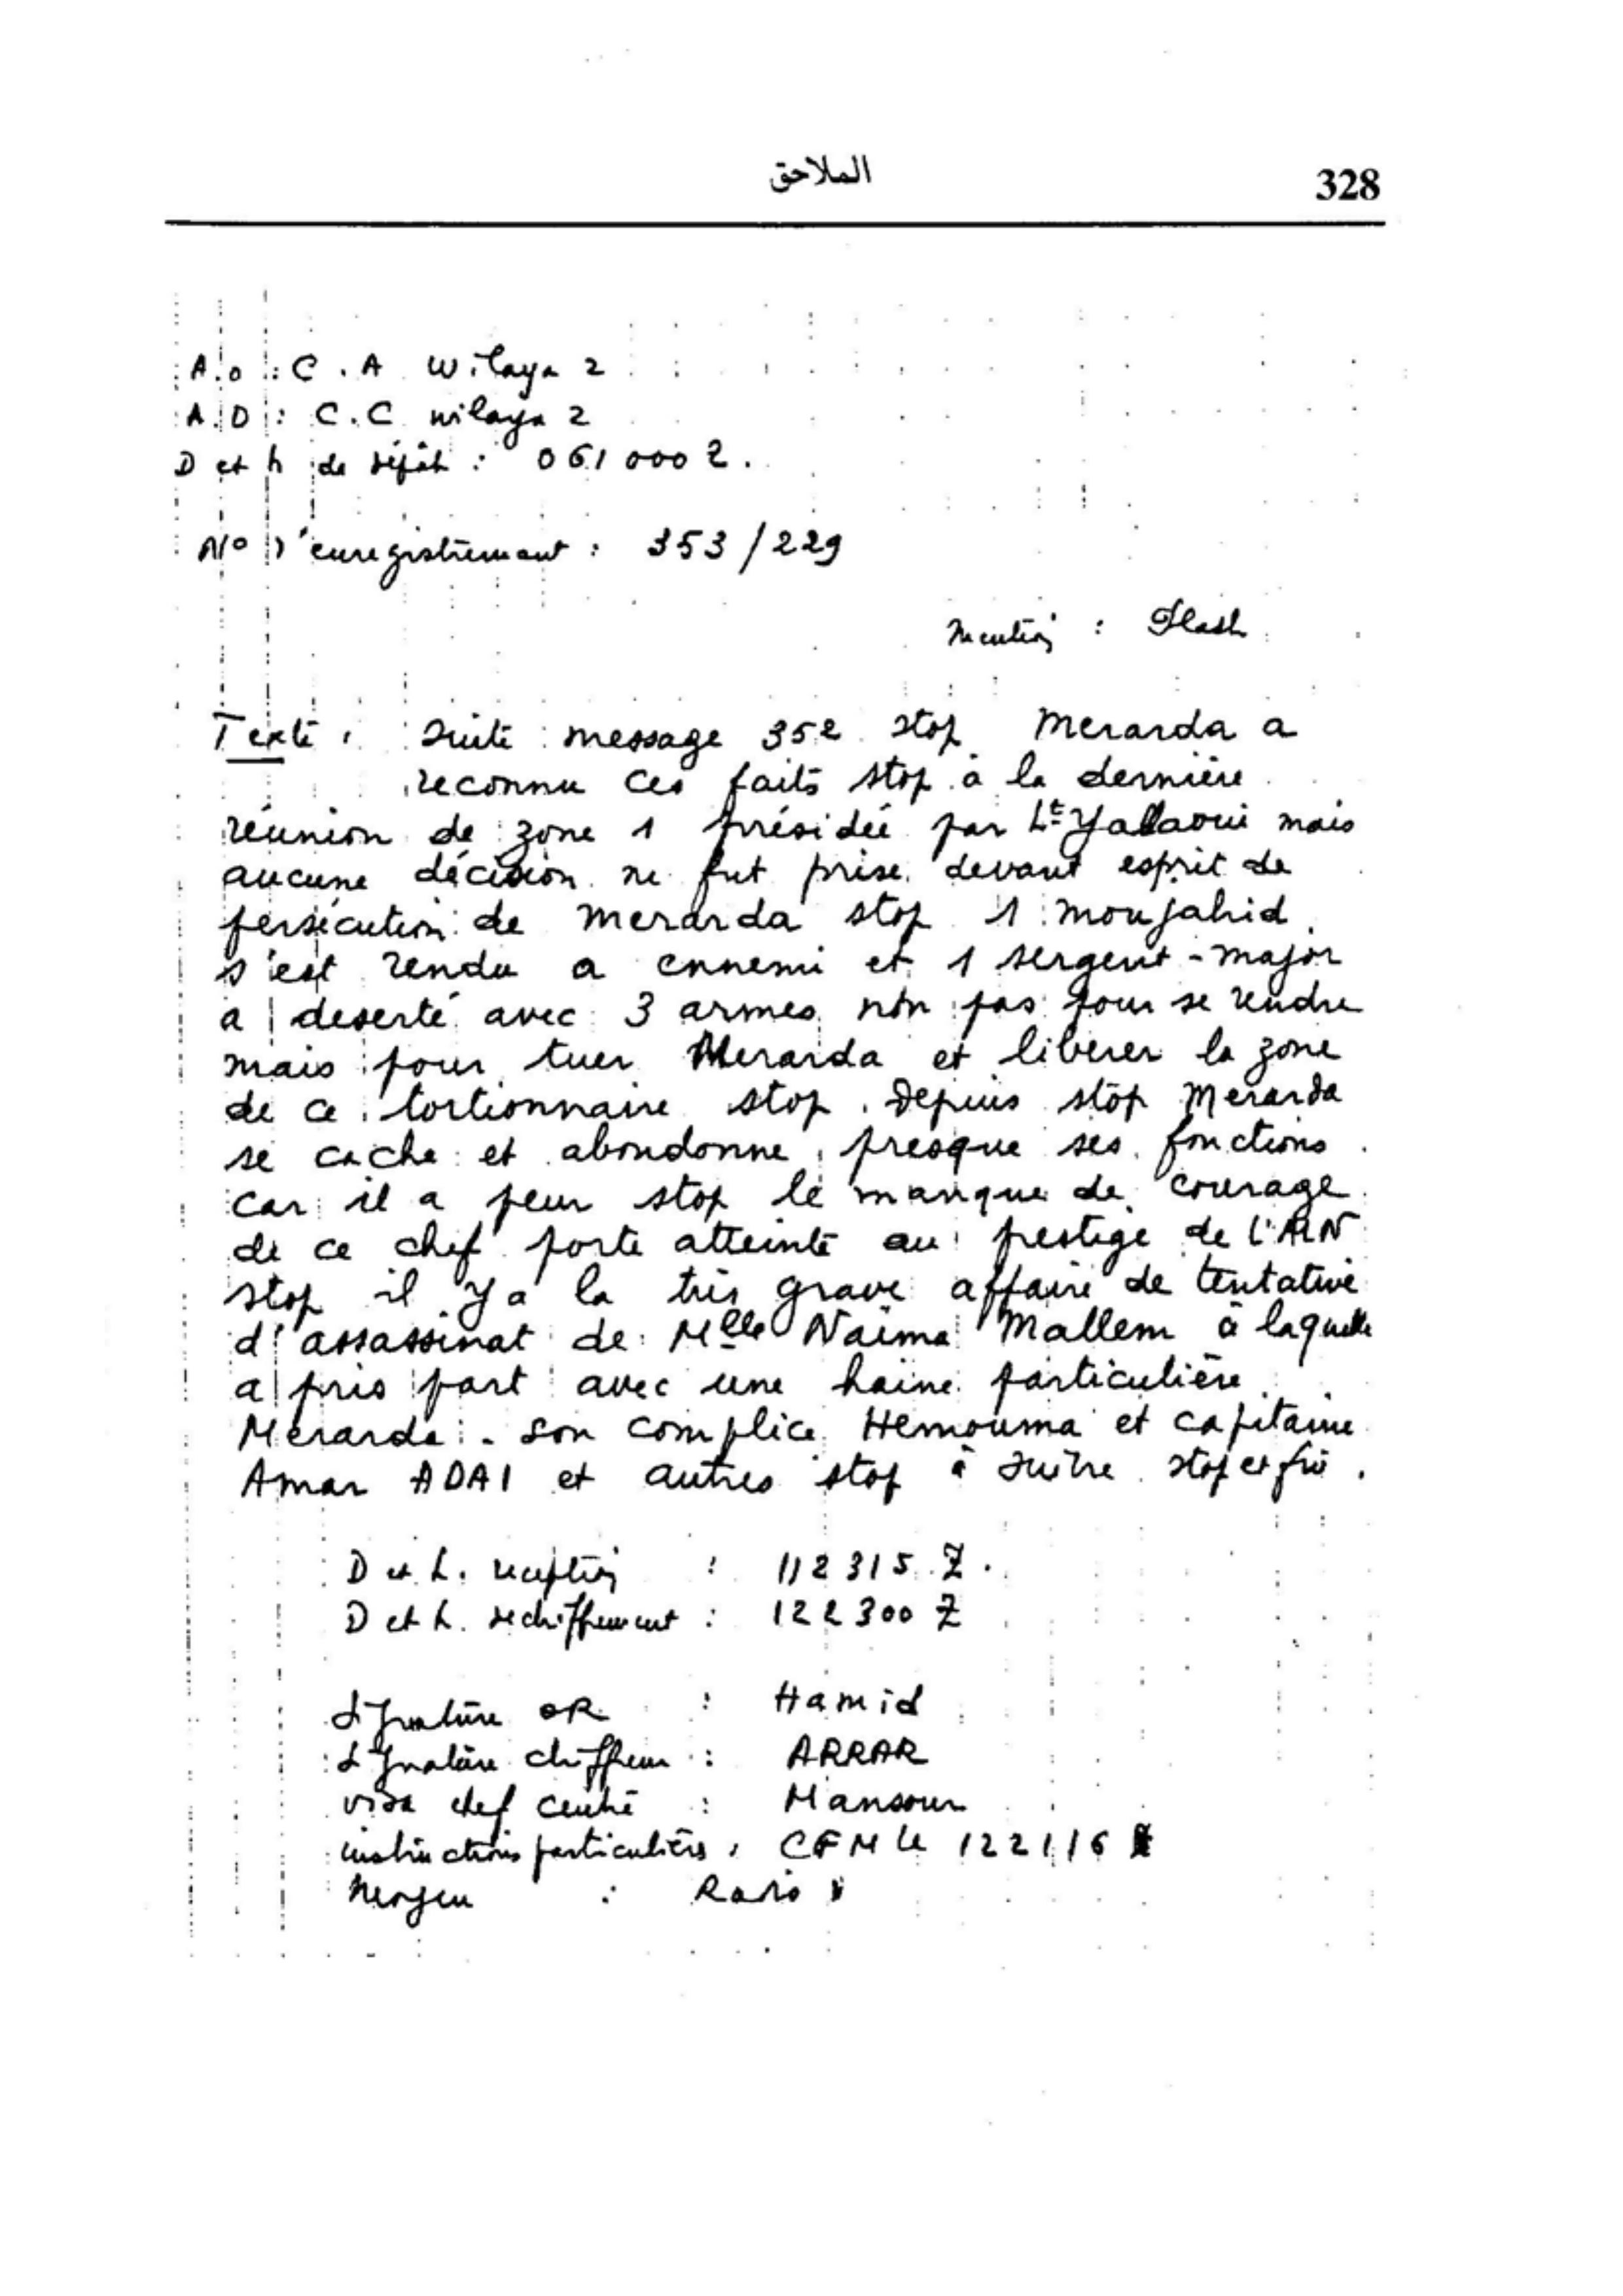 الملاحق
328
A.O : C.A Wilaya 2
A.D : C.C wilaya 2
D et h de dépôt : 061000 Z.
N° d'enregistrement : 353/229
Mention : Flash
Texte : suite message 352 stop Merarda a
reconnu ces faits stop à la dernière
réunion de zone 1 présidée par Lt Yalaoui mais
aucune décision ne fut prise devant esprit de
persécution de Merarda stop 1 moujahid
s'est rendu a ennemi et 1 sergent-major
a deserté avec 3 armes non pas pour se rendre
mais pour tuer Merarda et liberer la zone
de ce tortionnaire stop . Depuis stop Merarda
se cache et abondonne presque ses fonctions
car il a peur stop le manque de courage
de ce chef porte atteinte au prestige de l'ALN
stop il y a la très grave affaire de tentative
d'assassinat de Mlle Naïma Mallem à laquelle
a pris part avec une haine particulière
Merarda - son complice Hemouma et capitaine
Amar ADAI et autres stop à suivre stop et fin .
D et h. reception : 112315 Z.
D et h. dechiffrement : 122300 Z
Signature OR : Hamid
Signature chiffreur : ARRAR
visa chef centre : Mansour
instructions particulières : CFM le 122116
Moyen : Radio